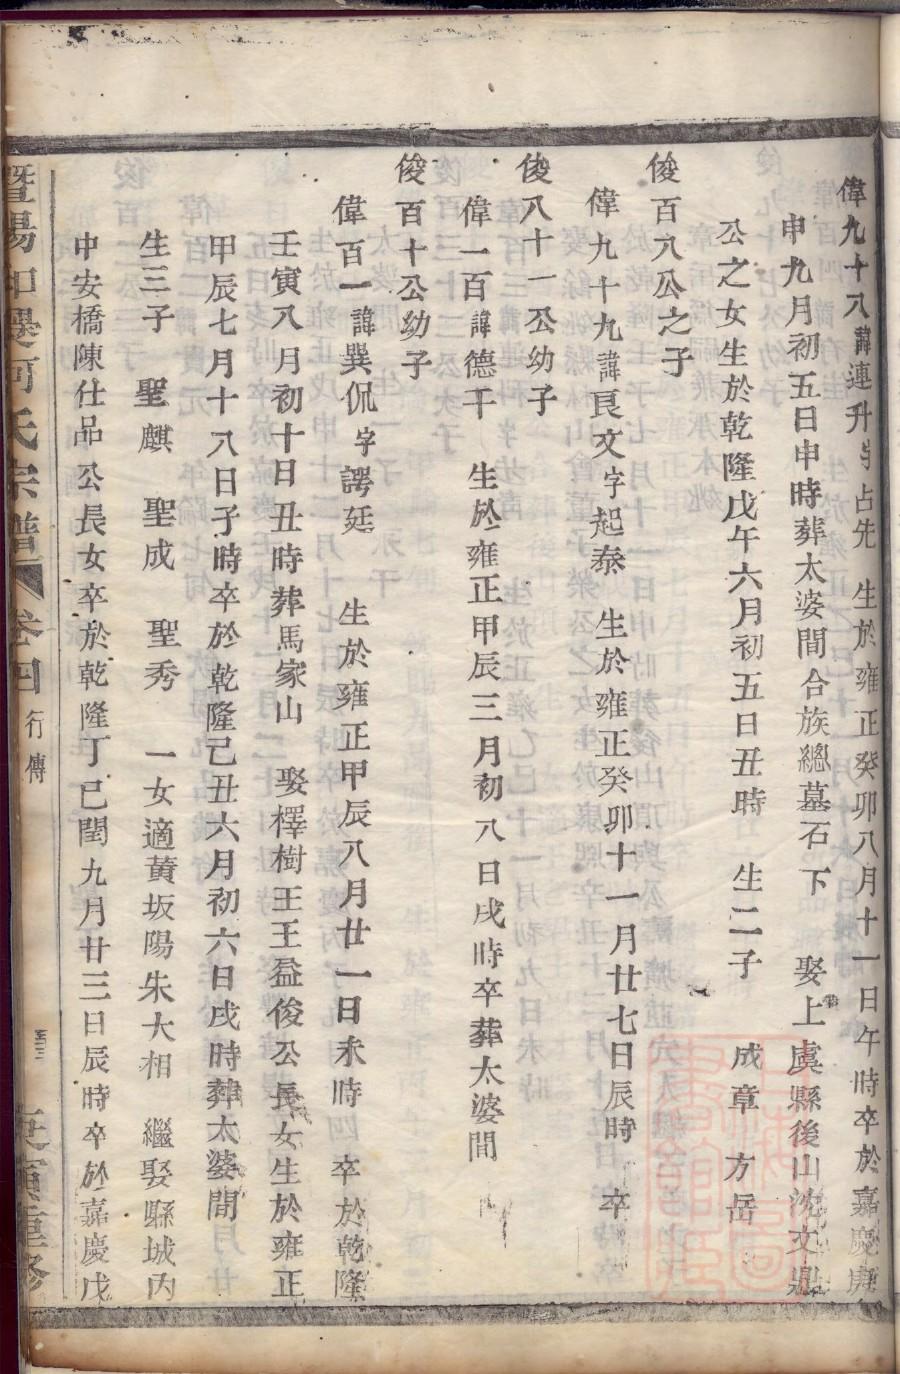 偉九十八諱連升字占先 生於雍正癸卯八月十一日午時卒於嘉慶庚
申九月初五日申時葬太婆間合族總墓石下 娶上虞縣後山沈文鼎
公之女生於乾隆戊午六月初五日丑時 生二子 成章 方岳
俊百八公之子
偉九十九諱良文字起泰 生於雍正癸卯十一月廿七日辰時 卒
俊八十一公幼子
偉一百諱德千 生於雍正甲辰三月初八日戌時卒葬太婆間
俊百十公幼子
偉百一諱巽侃字諤廷 生於雍正甲辰八月廿一日未時 卒於乾隆
壬寅八月初十日丑時葬馬家山 娶檡樹王王益俊公長女生於雍正
甲辰七月十八日子時卒於乾隆己丑六月初六日戌時葬太婆間
生三子 聖麒 聖成 聖秀 一女適黄坂陽朱大相 繼娶縣城内
中安橋陳仕品公長女卒於乾隆丁巳閏九月廿三日辰時卒於嘉慶戊
暨陽 何氏宗譜 卷四 行傳 重修